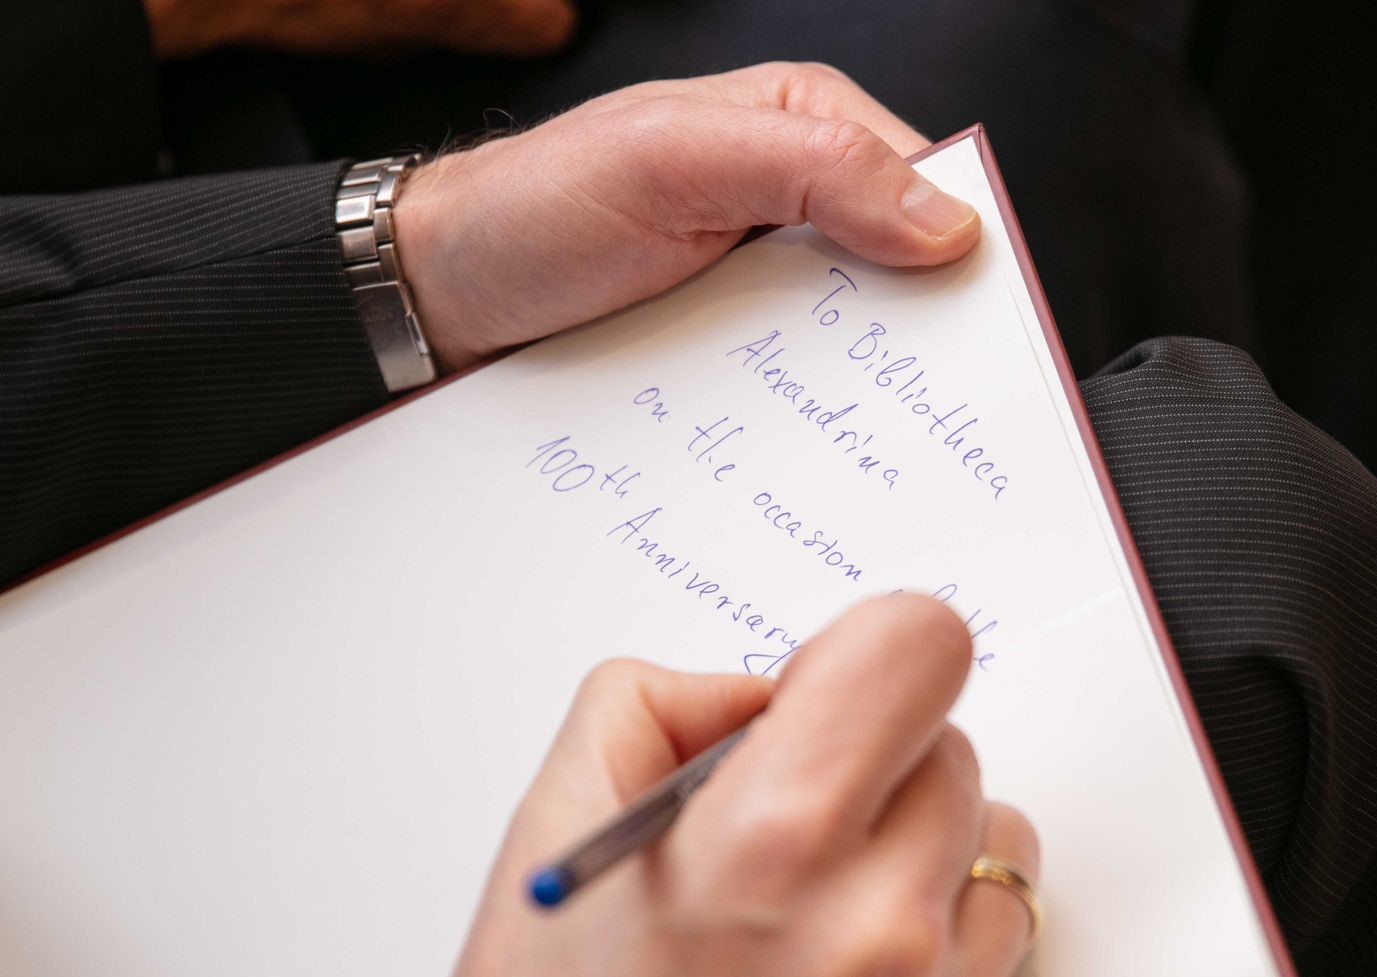 To Bibliotheca
Alexandrina
on the occasion the
100th Anniversary